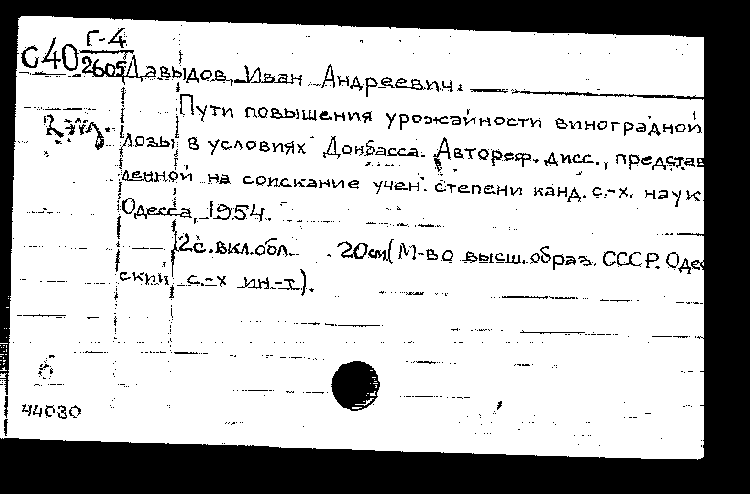 Г-4
С40 2605 Давыдов, Иван Андреевич.
Пути повышения урожайности виноградной
2 экз. лозы в условиях Донбасса. Автореф. дисс., представ
ленной на соискание учен. степени канд. с.-х. наук
Одесса, 1954.
12с. вкл. обл. 20см (М-во высш. образ. СССР. Одес
ский с.-х ин-т).
б
44030